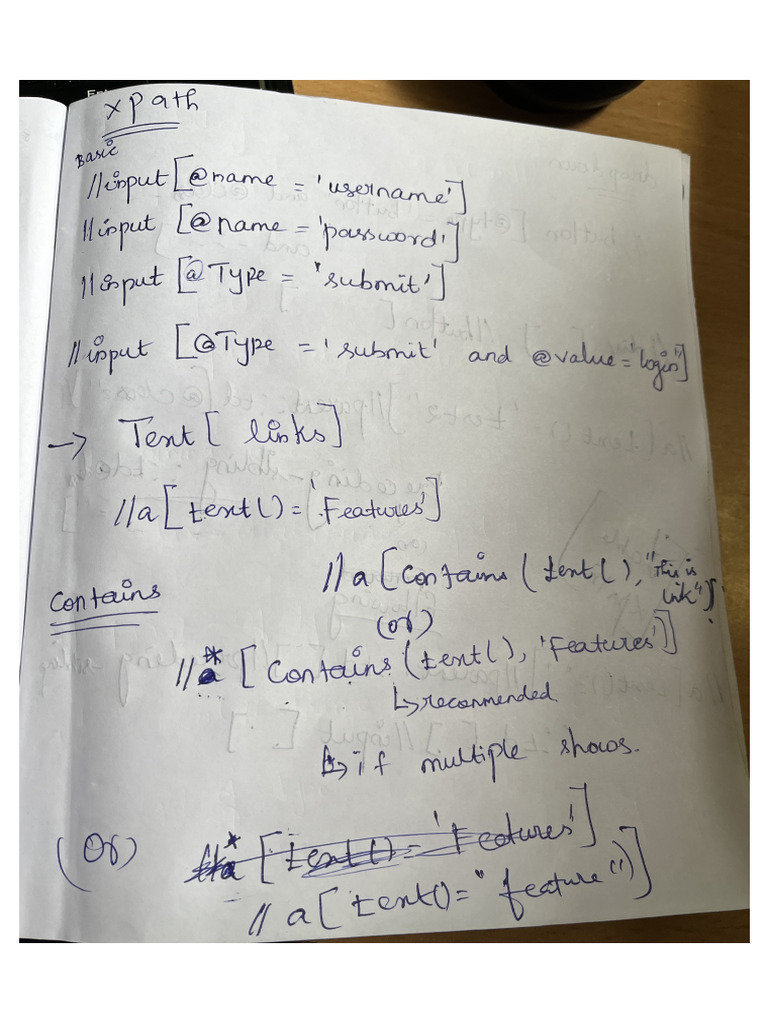 XPath
Basic
//input[@name = 'username']
//input [@name = 'password']
//input [@Type = "submit']
//input [@Type = 'submit' and @value = login"]
→ Text [ links]
//a [text() = 'Features']
//a [Contains (text(), "This is link")]
Contains
(or)
//* [Contains (text(), 'Features']]
↳ recommended
↳ if multiple shows.
(Or)
//a* [text() = 'Features']
//a [text() = "feature")]